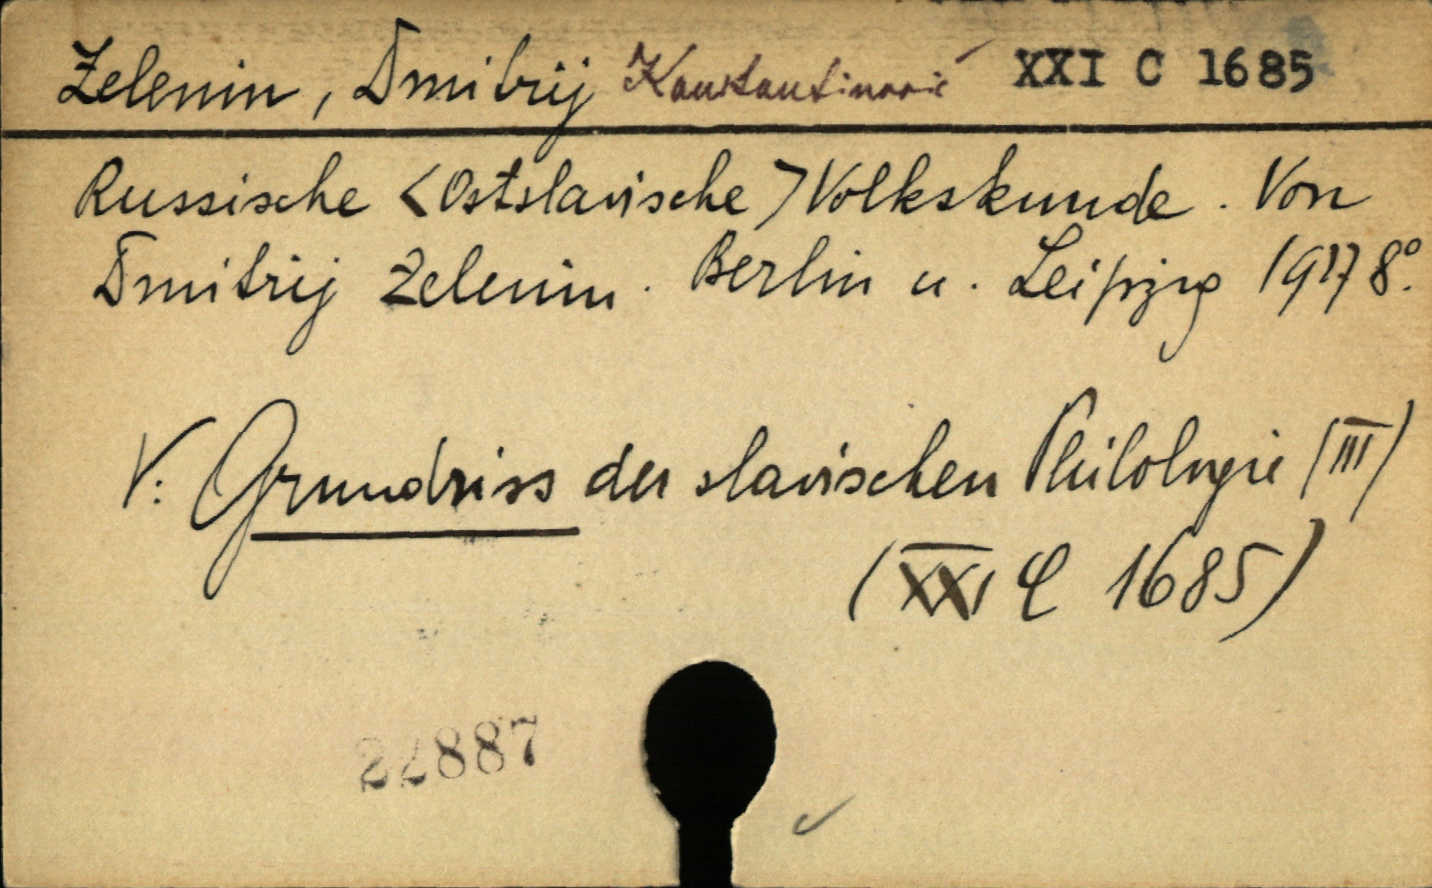 Zelenin, Dmitrij Konstantinovič XXI C 1685
Russische <Ostslavische> Volkskunde. Von
Dmitrij Zelenin. Berlin u. Leipzig 1927 8°.
V: Grundriss der slavischen Philologie (III)
(XXI C 1685)
22887